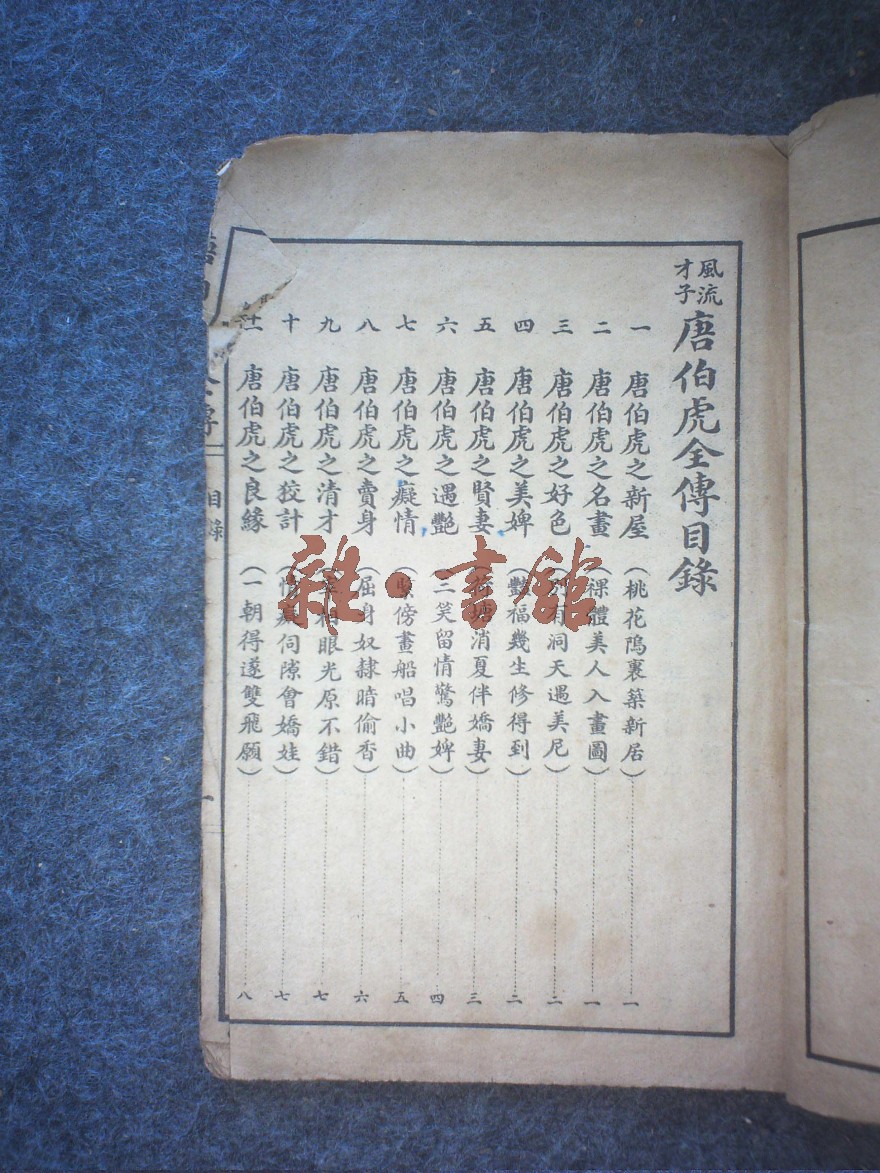 風流
才子
唐伯虎全傳目錄
一 唐伯虎之新屋（桃花隖裏築新居）一
二 唐伯虎之名畫（裸體美人入畫圖）一
三 唐伯虎之好色（別有洞天遇美尼）二
四 唐伯虎之美婢（豔福幾生修得到）二
五 唐伯虎之賢妻（荷塘消夏伴嬌妻）三
六 唐伯虎之遇艷（三笑留情驚艷婢）四
七 唐伯虎之癡情（緊傍畫船唱小曲）五
八 唐伯虎之賣身（屈身奴隸暗偷香）六
九 唐伯虎之清才（眼光原不錯）七
十 唐伯虎之狡計（伺隙會嬌娃）七
十一 唐伯虎之良緣（一朝得遂雙飛願）八
全傳
目錄
一
雜·書館